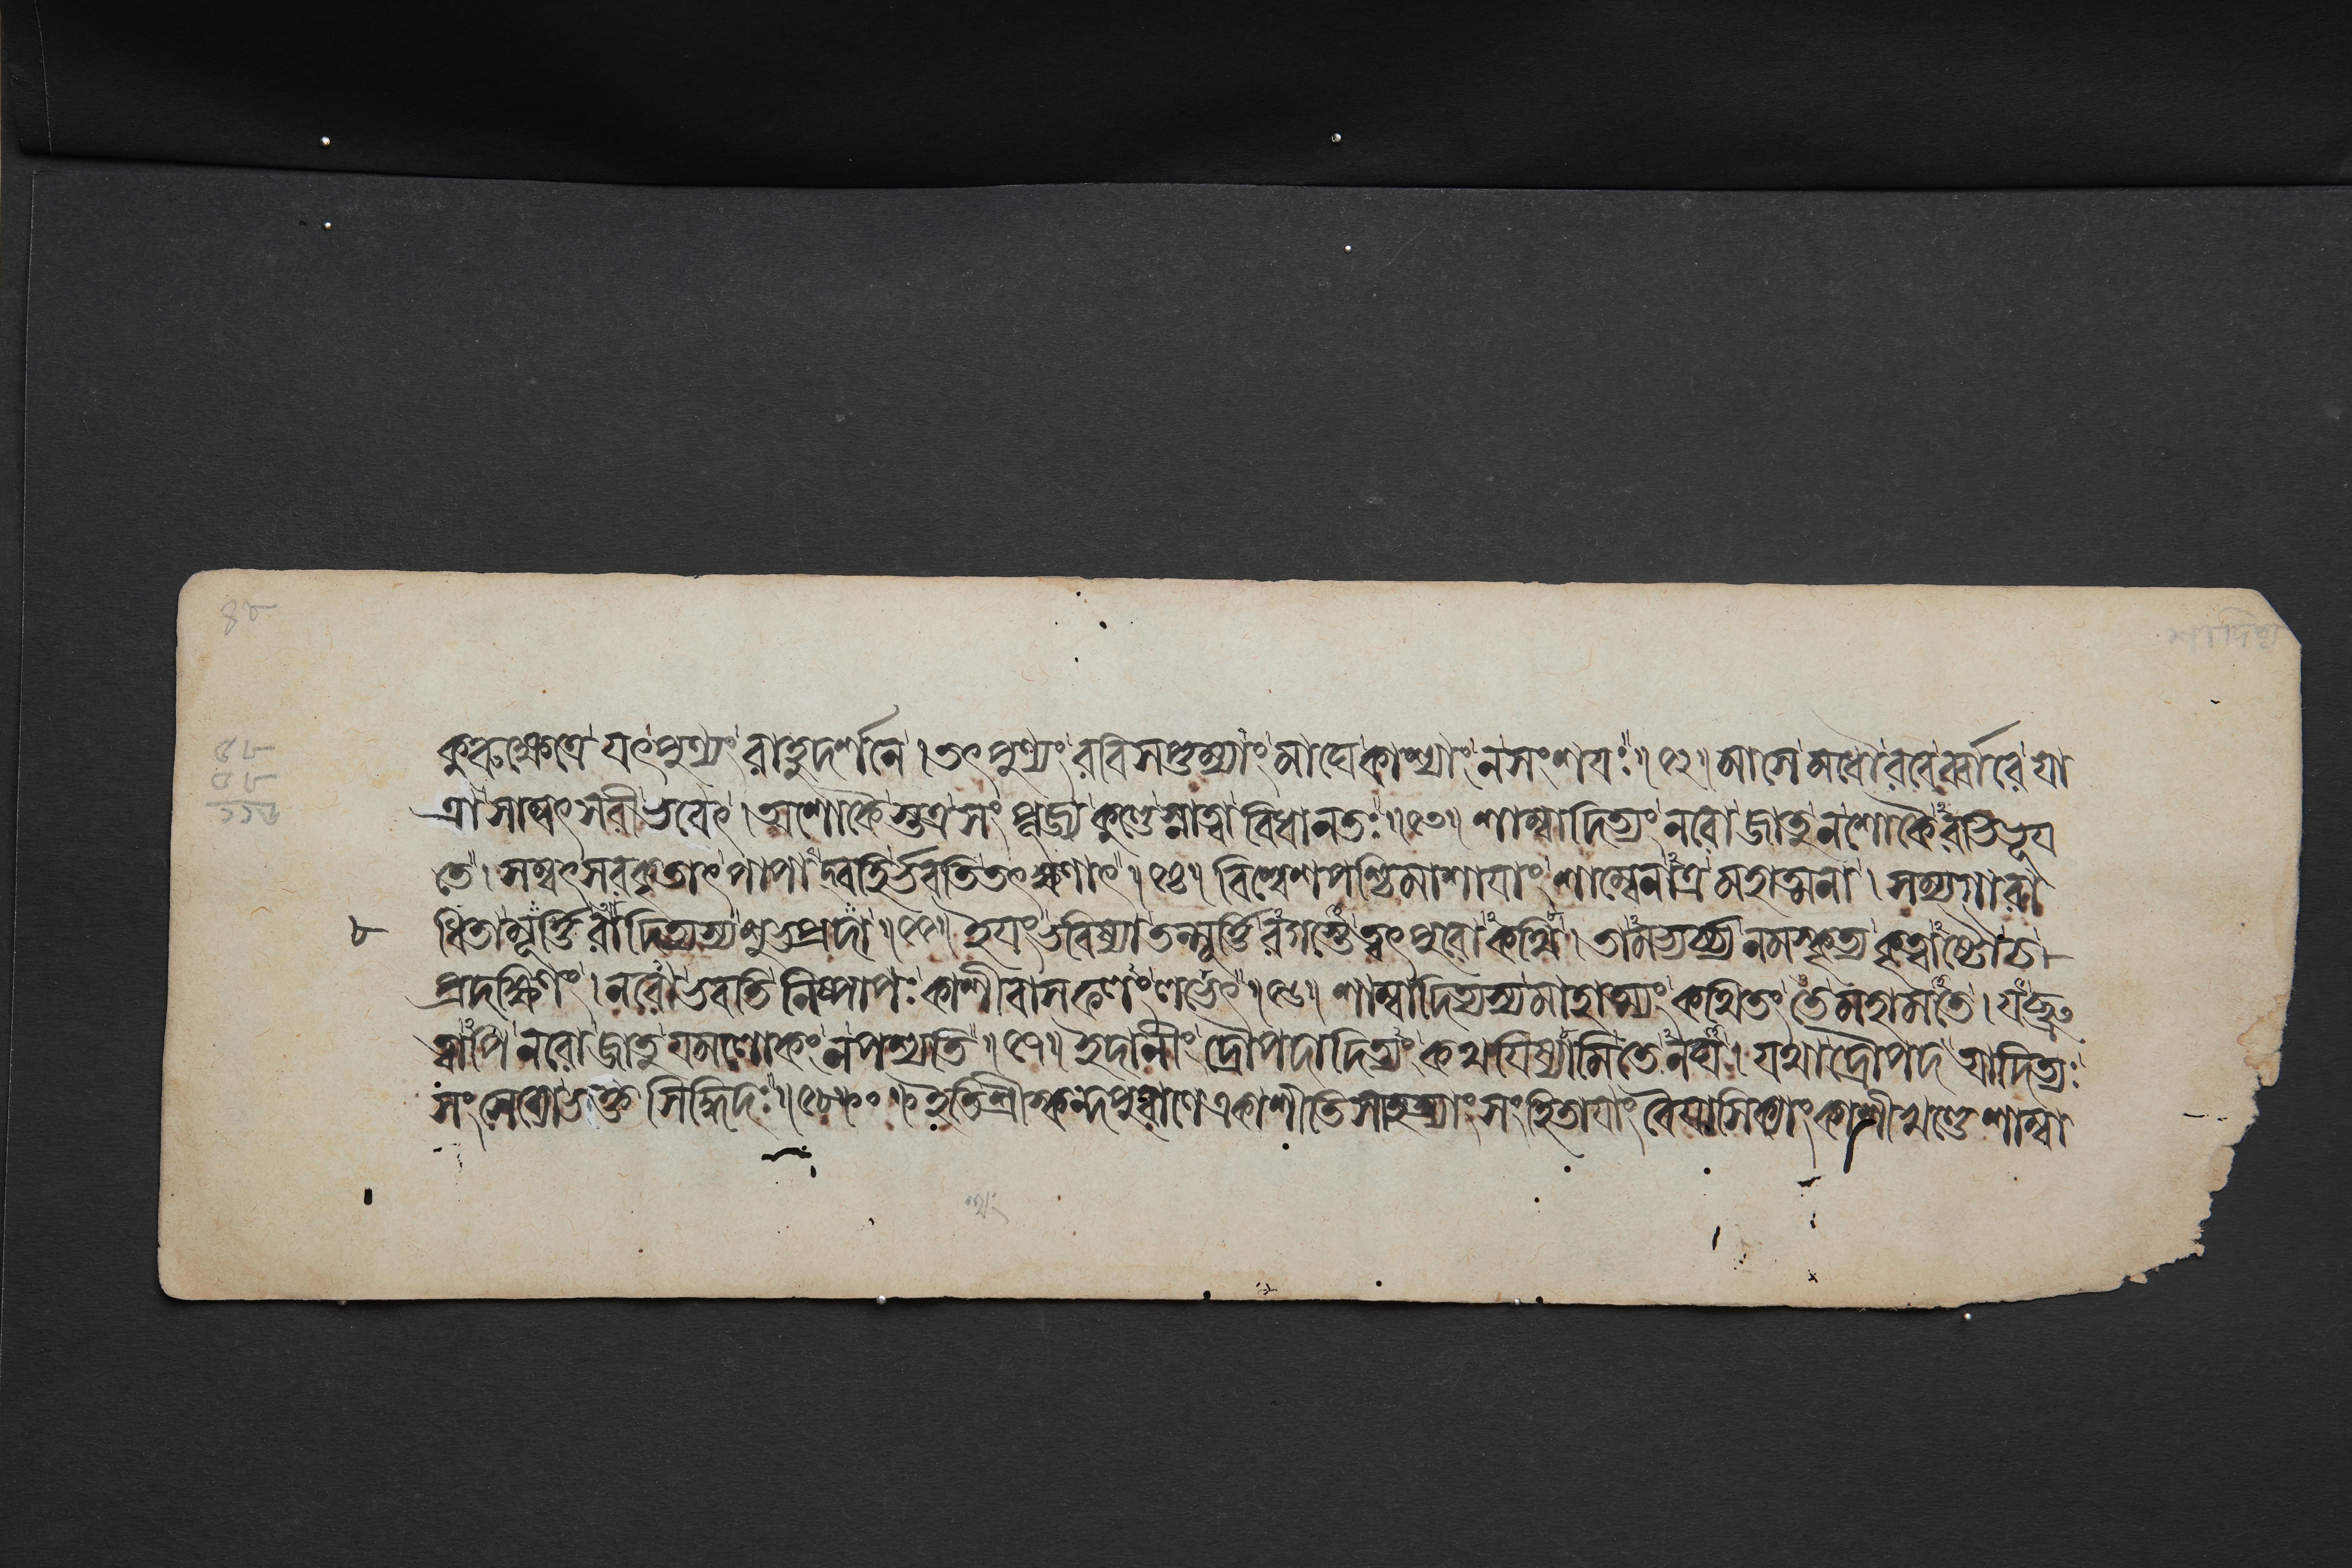 ৪৮
কুরুক্ষেত্রে যৎপুণ্যং রাহুদর্শনে । তৎপুণ্যং রবিসপ্তম্যাং মাঘে কাশ্যাং ন সংশয়ঃ ॥ ৫২ ॥ মাসে মধৌ রবের্ব্বারে যা
ত্রা সাম্বৎসরী ভবেৎ । অশোকৈস্তত্র সংপূজ্য কুণ্ডে স্নাত্বা বিধানতঃ ॥ ৫৩ ॥ শাম্বাদিত্যং নরো জাতু ন শোকৈরভিভূয়
তে । সম্বৎসরকৃতাৎ পাপাদ্বহির্ভবতি তৎক্ষণাৎ ॥ ৫৪ ॥ বিশ্বেশপশ্চিমাশায়াং শাম্বেনাত্র মহাত্মনা । সম্যগারা
ধিতা মূর্ত্তিরাদিত্যস্য শুভপ্রদা ॥ ৫৫ ॥ ইয়ং ভবিষ্যা তন্মূর্ত্তিরগস্তে ত্বৎপুরোকথি । তামভ্যর্চ্য নমস্কৃত্য কৃত্বাষ্টৌ চ
৮
প্রদক্ষিণং । নরো ভবতি নিষ্পাপঃ কাশীবাসফলং লভেৎ ॥ ৫৬ ॥ শাম্বাদিত্যস্য মাহাত্ম্যং কথিতং তে মহামতে । যচ্ছ্রু
ত্বাপি নরো জাতু যমলোকং ন পশ্যতি ॥ ৫৭ ॥ ইদানীং দ্রৌপদাদিত্যং কথয়িষ্যামি তেনঘ । যথা দ্রৌপদ আদিত্যঃ
সংসেব্যো ভক্তসিদ্ধিদঃ ॥ ৫৮ ॥ ০ ॥ ইতি শ্রীস্কন্দপুরাণে একাশীতিসাহস্র্যাং সংহিতায়াং বৈয়াসিক্যাং কাশীখণ্ডে শাম্বা